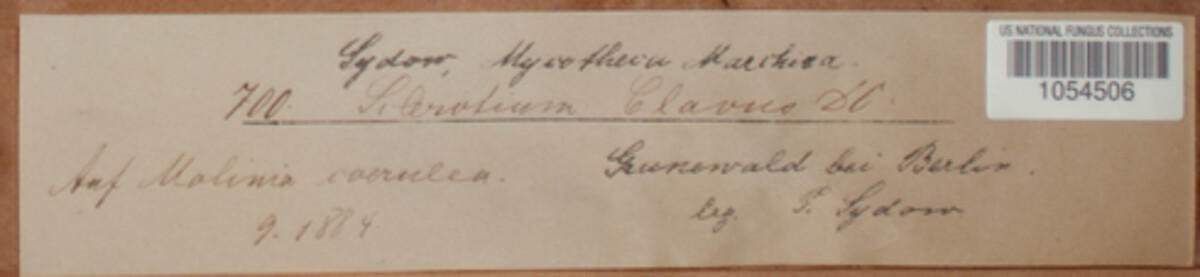 Sydow, Mycotheca Marchica.
700. Sclerotium Clavus DC.
Auf Molinia coerulea.
9. 1884
Grunewald bei Berlin.
leg. P. Sydow
US NATIONAL FUNGUS COLLECTIONS
1054506